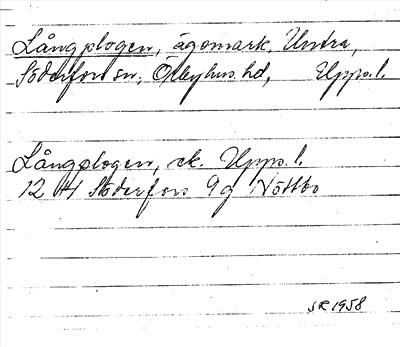 Långplogen, ägomark, Untra,
Söderfors sn, Örbyhus hd, Upps. l.
Långplogen, ek. Upps. l.
12 H Söderfors 9 g Nöttbo
SR 1958